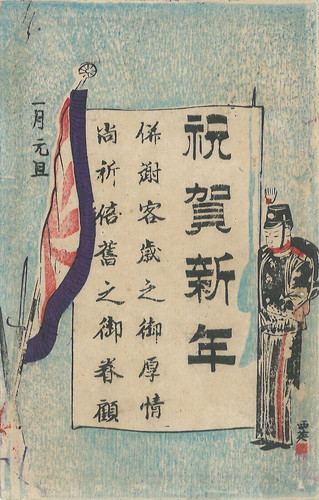 祝賀新年
併謝客歳之御厚情
尚祈倍舊之御眷顧
一月元旦